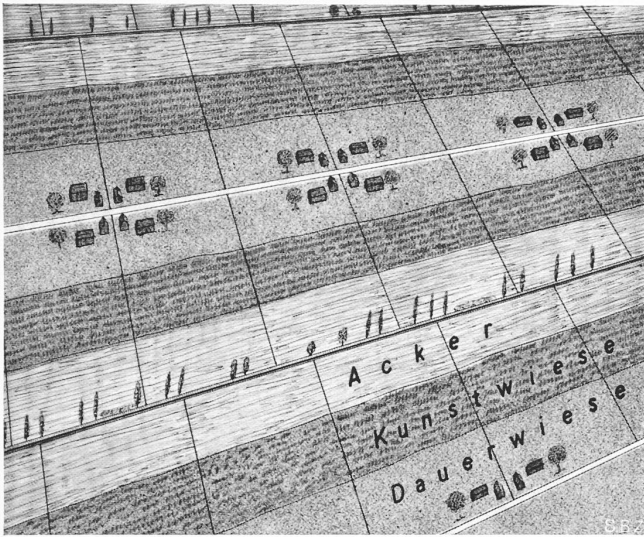 Acker
Kunstwiese
Dauerwiese